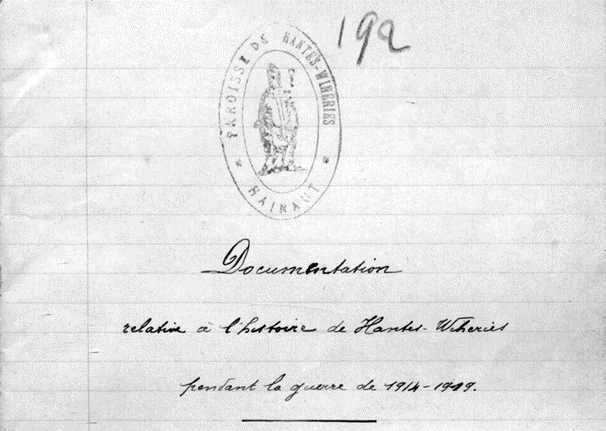 192
PAROISSE DE HANTES-WIHERIES
* HAINAUT *
Documentation
relative à l'histoire de Hantes-Wiheries
pendant la guerre de 1914-1919.